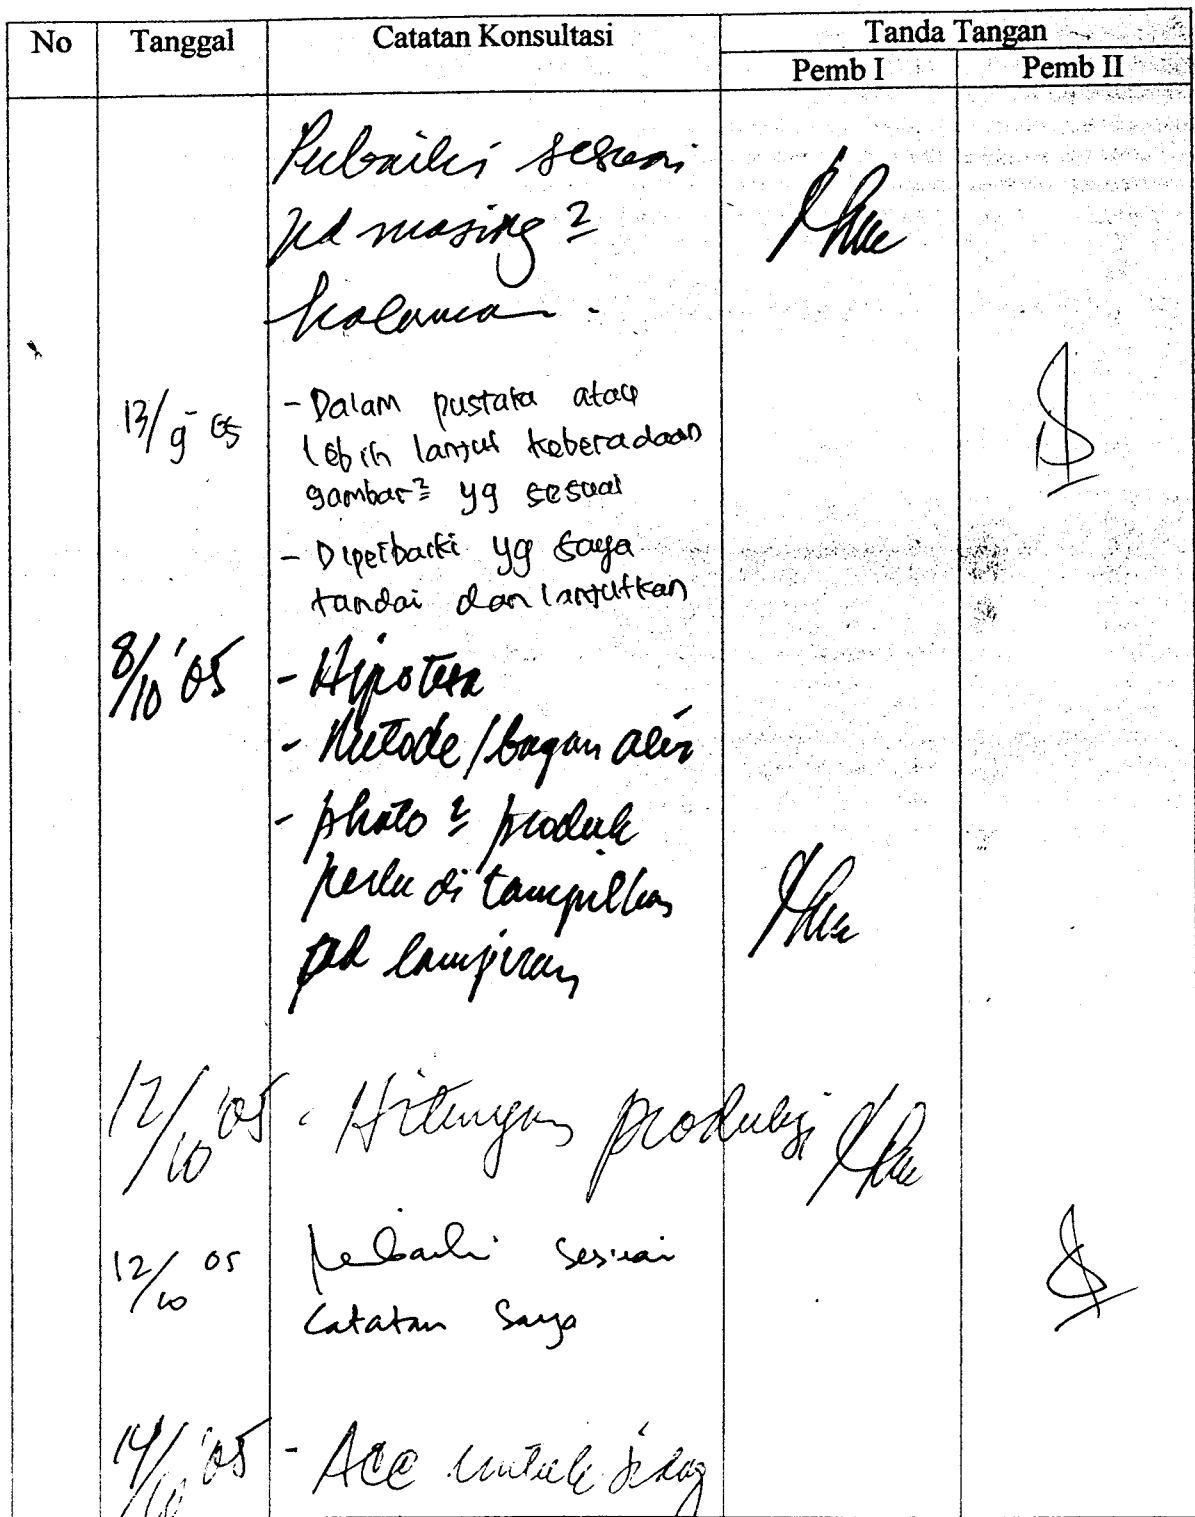 No Tanggal Catatan Konsultasi Tanda Tangan
Pemb I Pemb II
Perbaiki sesuai
pd masing2
halaman.
13/9-05 - Dalam pustaka atau
lebih lanjut keberadaan
gambar2 yg sesuai
- Diperbaiki yg saya
tandai dan lanjutkan
8/10 '05 - Hipotesa
- Metode / bagan alir
- photo2 produk
perlu di tampilkan
pad lampiran
12/10 '05 - Hitungan produksi
12/10 05 Perbaiki sesuai
Catatan Saya
14/10 '05 - Acc untuk sidang